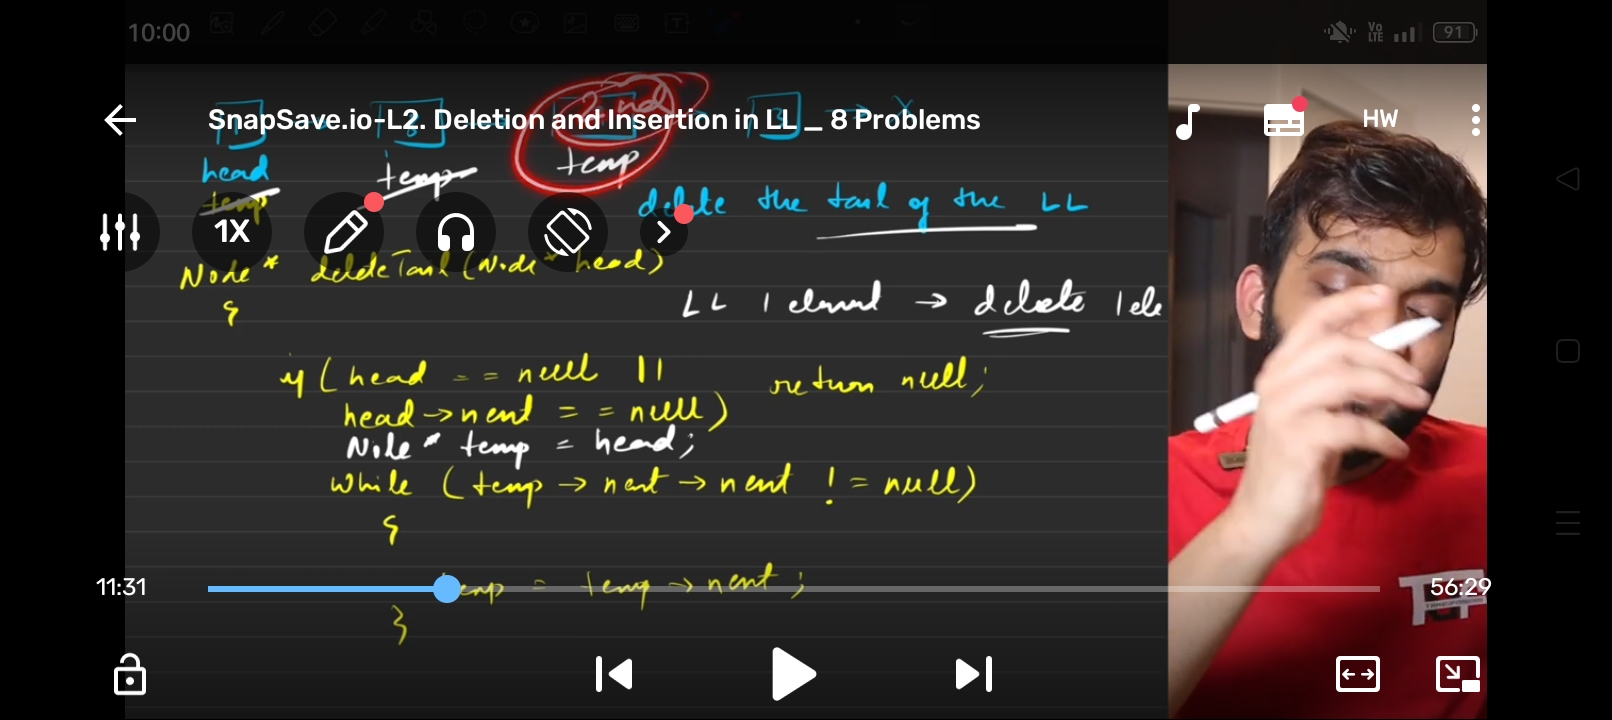 10:00
Vo LTE
91
SnapSave.io-L2. Deletion and Insertion in LL _ 8 Problems
HW
2nd
3
head
temp
temp
temp
delete the tail of the LL
1X
Node* deleteTail(Node* head)
{
LL 1 element → delete 1 ele
if (head == null ||
return null;
head→next == null)
Node* temp = head;
while (temp → next → next != null)
{
temp = temp → next;
11:31
56:29
}